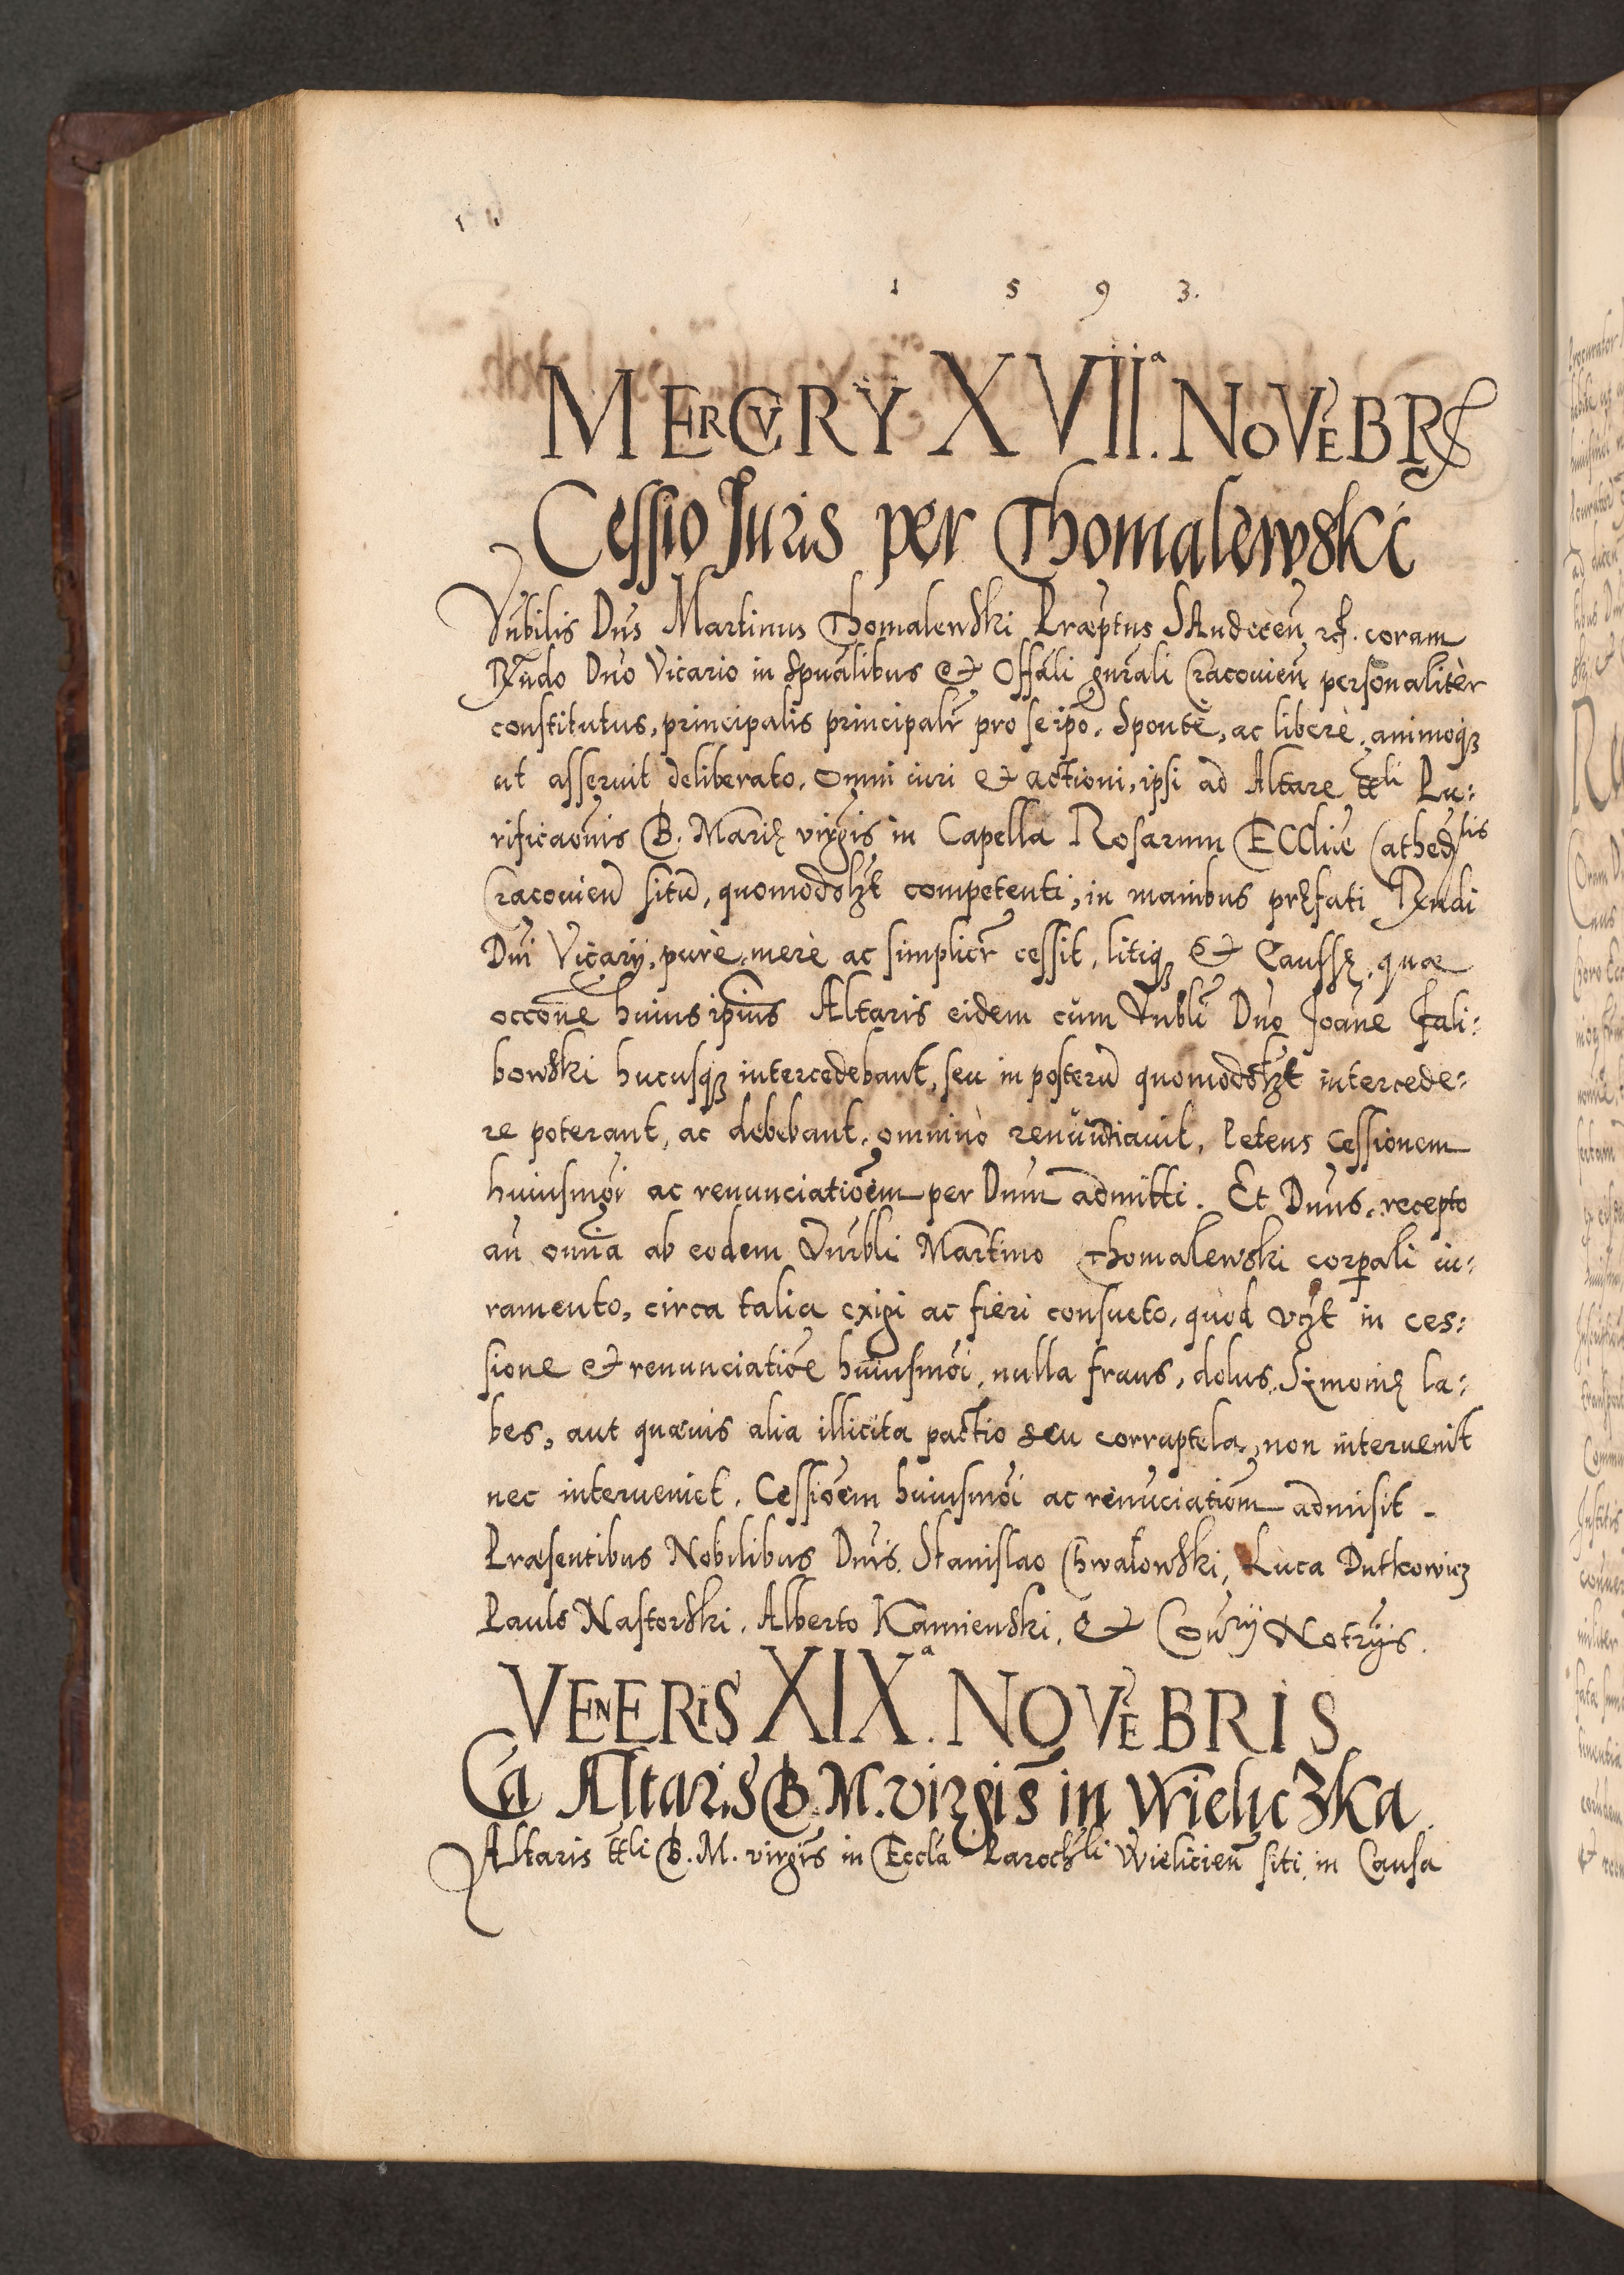 1 5 9 3.
MERCVRY XVII.ª NOVĒBRS
Cessio Juris per Thomalewski
Vnbilis Dns Martinus Thomalewski Præptus SAndeceñ. coram
Rndo Dno Vicario in Spualibus & Offāli gnrali Cracouieñ personalitèr
constitutus, principalis principalr̄ pro seipo, Spontè, ac liberè, animoqз
ut asseruit deliberato, omni iuri & actioni, ipsi ad Altare ttli Pu:
rificaonis B. Marię virgis in Capella Rosarum ECClīæ Cathedlis
Cracouieñ situ, quomodolзt competenti, in manibus pręfati Rndi
Dni Vicarÿ, purè, merè ac simplicr̄ cessit, litiqз & Caussę, quæ
occōne huius ipīus Altaris eidem cùm Vnbli Dno Joāne Fali:
bowski hucusqз intercedebant, seu in posterū quomodolзt intercede:
re poterant, ac debebant, omninò renūntiauit, Petens Cessionem
huiusmōi ac renunciatiōem per Dnm admitti. Et Dnns, recepto
añ omnia ab eodem Vnrbli Martino Thomalewski corpali iu:
ramento, circa talia exigi ac fieri consueto, quòd vзt in ces:
sione & renunciatiōe huiusmōi, nulla fraus, dolus, Symonię la:
bes, aut quæuis alia illicita pactio seu corruptela, non interuenit
nec interueniet. Cessiōem huiusmōi ac renūciatiom admisit.
Præsentibus Nobilibus Dnis. Stanislao Chwalowski, Luca Dutkowicz
Paulo Nastorski, Alberto Kamienski, & Coñrÿ Notrÿs.
VENERIS XIXª. NOVĒBRIS
Ca Altaris B. M. virgis in Wieliczka.
Altaris ttli B. M. virgis in Eccla Parochli Wielicieñ siti, in Causa